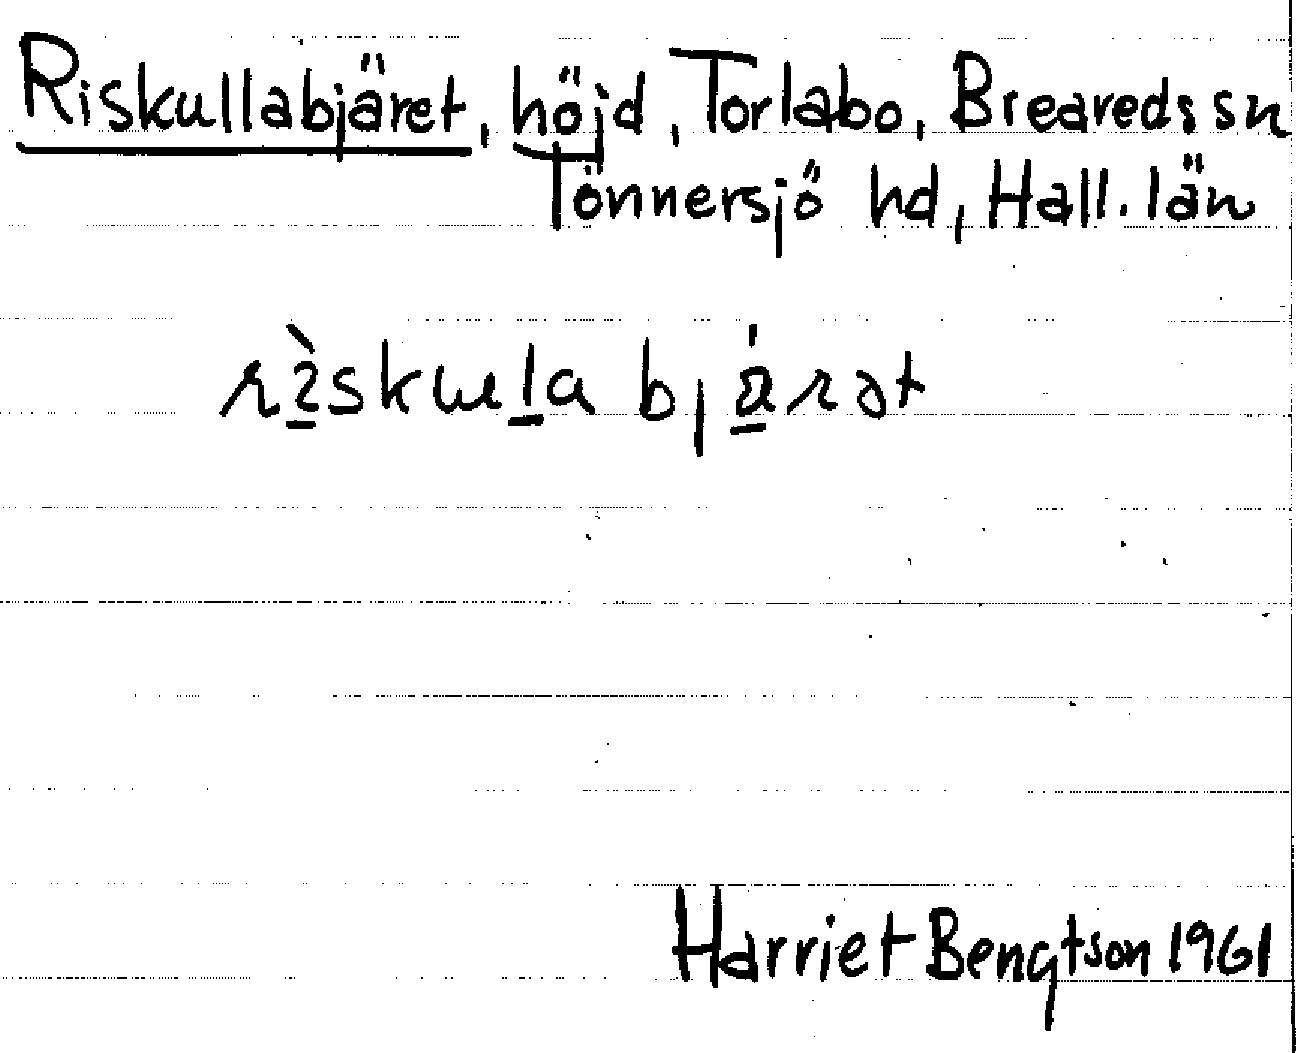 Riskullabjäret, höjd, Torlabo, Breareds sn
Tönnersjö hd, Hall. län
rìskula bjárət
Harriet Bengtson 1961